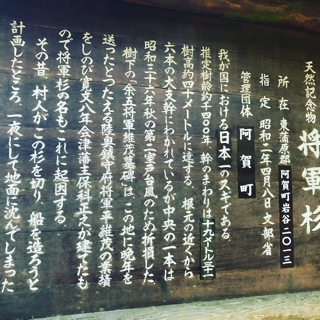 天然記念物
将軍杉
所在 東蒲原郡 阿賀町岩谷二〇一三
指定 昭和二年四月八日 文部省
管理団体 阿賀町
我が国における日本一のスギである。
推定樹齢約千四〇〇年、幹のまわりは十九メートル三十一
樹高約四十メートルに達する。根元の近くから
六本の支幹にわかれているが中央の一本は
昭和三十六年秋の第二室戸台風のため折損した
樹下の「余五将軍維茂墓碑」は、この地に晩年を
送ったとつたえる陸奥鎮守府将軍平維茂の業績
をしのび寛文八年会津藩主保科正之が建てたも
ので将軍杉の名もこれに起因する。
その昔、村人がこの杉を切り、船を造ろうと
計画したところ、一夜にして地面に沈んでしまった